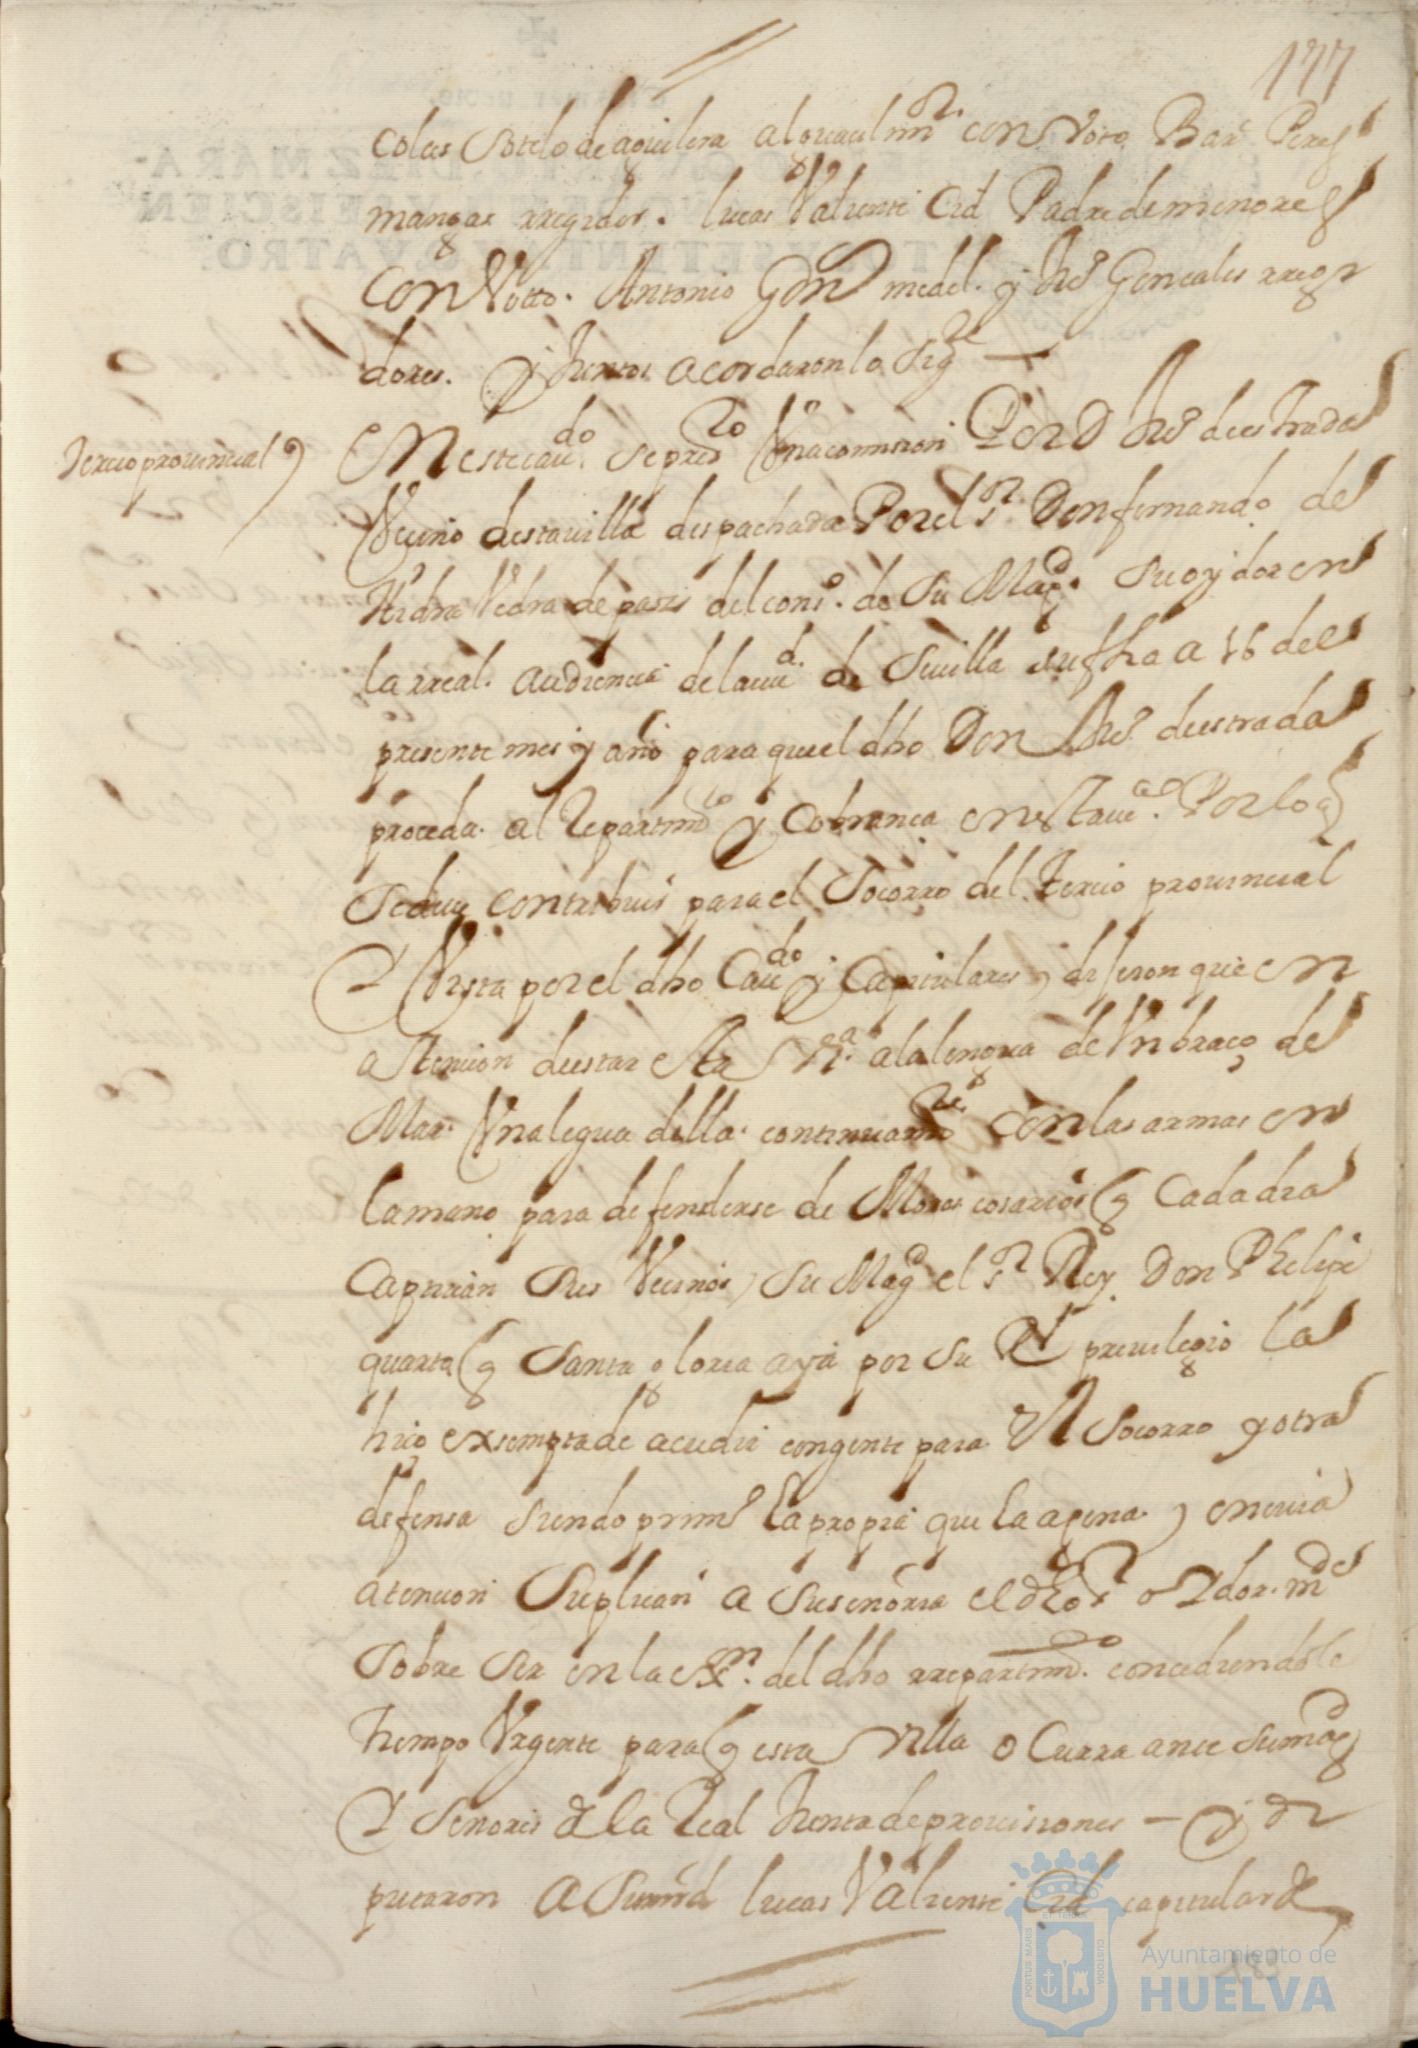 177
colas Sotelo de aguilera alguacil mr con Voto Bar Peres
mangas rregidor. lucas Valiente Cid Padre de menores
con Votto. Antonio Gon medel. y Jhº Goncales rregi
dores. y Juntos acordaron lo sigte
Tercio provincial
En este caudo. se preslo Una comission Por D Jhº de estrada
Vecino desta villa despachada Por el sr Don fernando de
Hidra Vedra de pazis del consº. de Su Magd. su oydor en
la rreal. audiencia de la ciud. de Sevilla su fha a 16 del
presente mes y año para que el dho Don Jhº de estrada
proceda. al Repartimto y Cobranca en esta Por lo q
se deve contribuir para el Socorro del Tercio provincial
Y Vista por el dho Caudo y Capitulares, dijeron que en
atencion de estar esta Va. a la lengua de Un braço de
Mar. Una legua della. continuamte con las armas en
la mano para defenderse de Moros cosarios q Cada dia
Captivan Sus Vecinos, Su Magd el sr Rey Don Phelipe
quarto q Santa gloria aya por su Rl previlegio la
hiço exsempta de acudir con gente para Rl Socorro y otra
defensa siendo primº la propia que la agena. y en cuia
atencion Suplican a Su señoria el dho sr oydor. mde
Sobre Ser en la Exn. del dho rrepartimto. concediendole
tiempo Urgente para q esta Villa o Curra ante su magd
Y Senores de la Real Junta de provissiones — y di
putaron a Su md lucas Valiente Cid capitular de
PORTUS MARIS
CUSTODIA
Ayuntamiento de
HUELVA